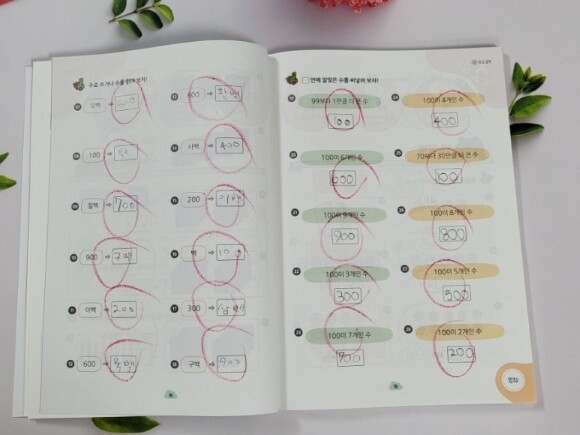 수로 쓰거나 수를 읽어 보자!
100
칠백 → 700
900 → 구백
이백 → 200
600 → 육백
사백 → 400
200 → 이백
백 →
300 → 삼백
구백 → 900
안에 알맞은 수를 써넣어 보자!
99보다 1만큼 더 큰 수
100
100이 6개인 수
600
100이 9개인 수
900
100이 3개인 수
300
100이 7개인 수
700
100이 4개인 수
400
70보다 30만큼 더 큰 수
100
100이 8개인 수
800
100이 5개인 수
500
100이 2개인 수
200